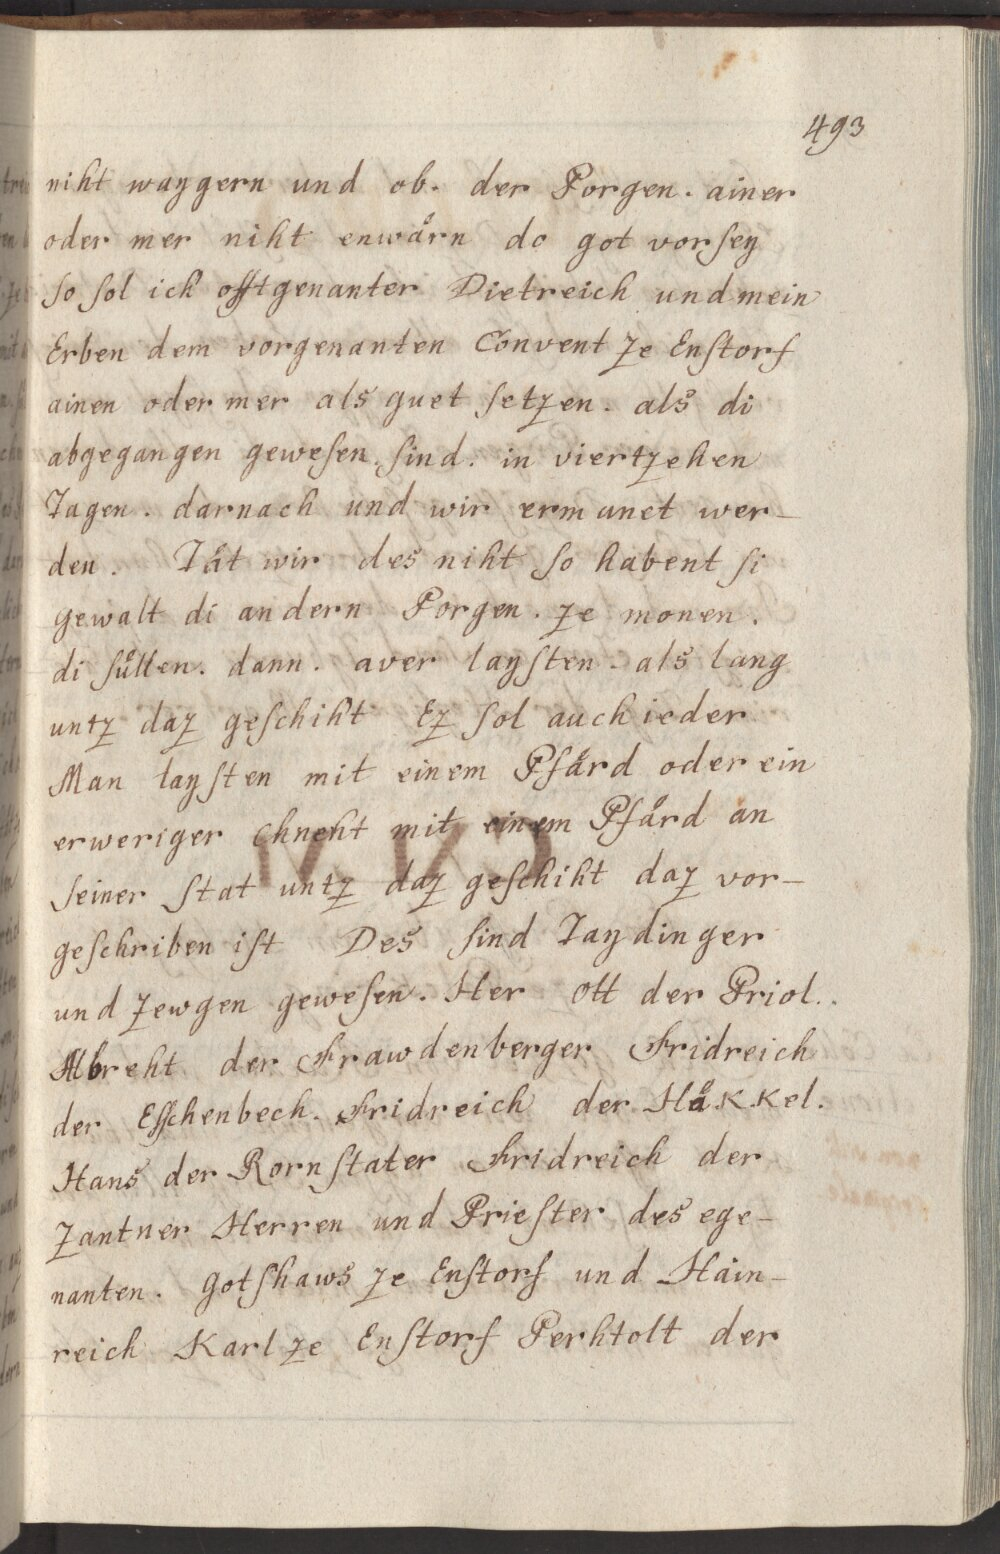 493
niht waygern und ob. der Porgen. ainer
oder mer niht enwårn do got vorsey
so sol ich offtgenanter Dietreich und mein
Erben dem vorgenanten Convent ze Enstorf
ainen oder mer als guet setzen. als di
abgegangen gewesen. sind. in viertzehen
Tagen. darnach und wir ermanet wer-
den. Tåt wir des niht so habent si
gewalt di andern Porgen. ze monen.
di sůllen. dann. aver laysten. als lang
untz daz geschiht Ez sol auch ieder
Man laysten mit einem Pfård oder ein
erweriger chneht mit einem Pfård an
seiner stat untz daz geschiht daz vor-
geschriben ist Des sind Taydinger
und Zewgen gewesen. Her Ott der Priol.
Albreht der Frawdenberger Fridreich
der Esschenbech. Fridreich der Håkkel.
Hans der Rornstater Fridreich der
Zantner Herren und Priester des ege-
nanten. Gotshaws ze Enstorf und Hain-
reich Karl ze Enstorf Perhtolt der